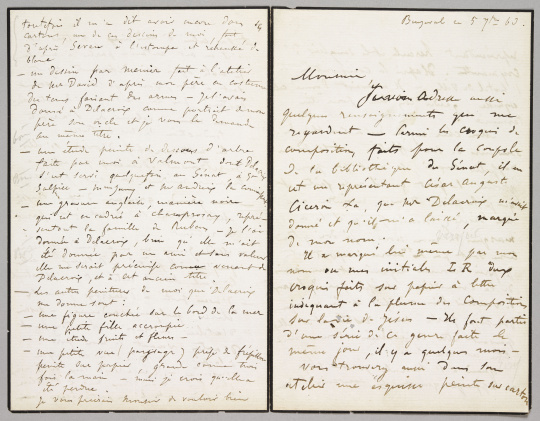 Bougival ce 5 7bre 63.
Monsieur,
J'ai à vous adresser aussi
quelques renseignements qui me
regardent — parmi les croquis de
composition faits pour la coupole
de la bibliothèque du Sénat, il en
est un représentant César Auguste
Cicéron &a, que Mr Delacroix m'avait
donné et qu'il m'a laissé, marqué
de mon nom.
Il a marqué lui même par mon
nom ou mes initiales L R deux
croquis faits sur papier à lettre
indiquant à la plume des compositions
sur la vie de Jésus — Ils font partie
d'une série de ce genre faite le
même jour, il y a quelques mois —
Vous trouverez aussi dans son
atelier une esquisse peinte sur carton
toutefois il m'a dit avoir encore dans
cartons, un de ces dessins de moi, fait
d'après Sevère à l'estompe et rehaussé de
blanc
— un dessin par menier fait à l'atelier
de Mr David d'après mon père en costume
du temps faisant des armes — Je l'avais
donné à Delacroix comme portrait de mon
père son oncle et je vous le demande
au même titre.
— une étude peinte de dessous d'arbre
faite par moi à Valmont dont Delacroix
s'est servi quelquefois au Sénat, à St
Sulpice —
— une gravure anglaise, manière noire
qui est encadrée à champrosay, représ-
entant la famille de Rubens, — Je l'ai
donnée à Delacroix, bien qu'elle m'ait
été donnée par un ami et sans valeur
elle me serait précieuse comme venant de
Delacroix et à cet ancien titre
— des autres peintures de moi que Delacroix
me donne sont :
— une figure couchée sur le bord de la mer
— une petite fille accroupie
— une étude fruits et fleurs —
— une petite vue (paysage) près de
peinte sur papier, grande comme trois
fois la main — mais je crois qu'elle a
été perdue.
— Je vous prierais Monsieur de vouloir bien